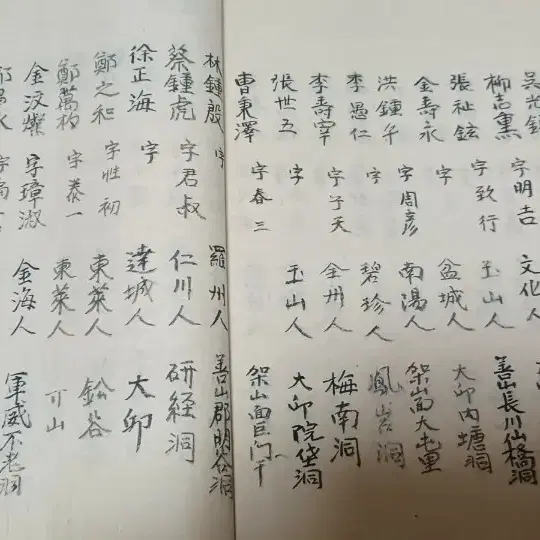 柳志熏 字明吉 文化人 善山長川仙橋洞
張祉鉉 字致行 玉山人 大邱內塘洞
金壽永 字 盆城人 架山面大屯里
洪鍾午 字周彦 南陽人 鳳岩洞
李愚仁 字 碧珍人 梅南洞
李壽宰 字子天 全州人 大邱院垈洞
張世五 字 玉山人 架山面巨门
曺秉澤 字春三
林鍾殷 字 羅州人 善山郡明谷洞
蔡鍾虎 字君叔 仁川人 研経洞
徐正海 字 達城人 大邱
鄭之和 字性初 東萊人 鈴谷
鄭萬杓 字泰一 東萊人 可山
金汶燦 字璋淑 金海人 軍威不老洞